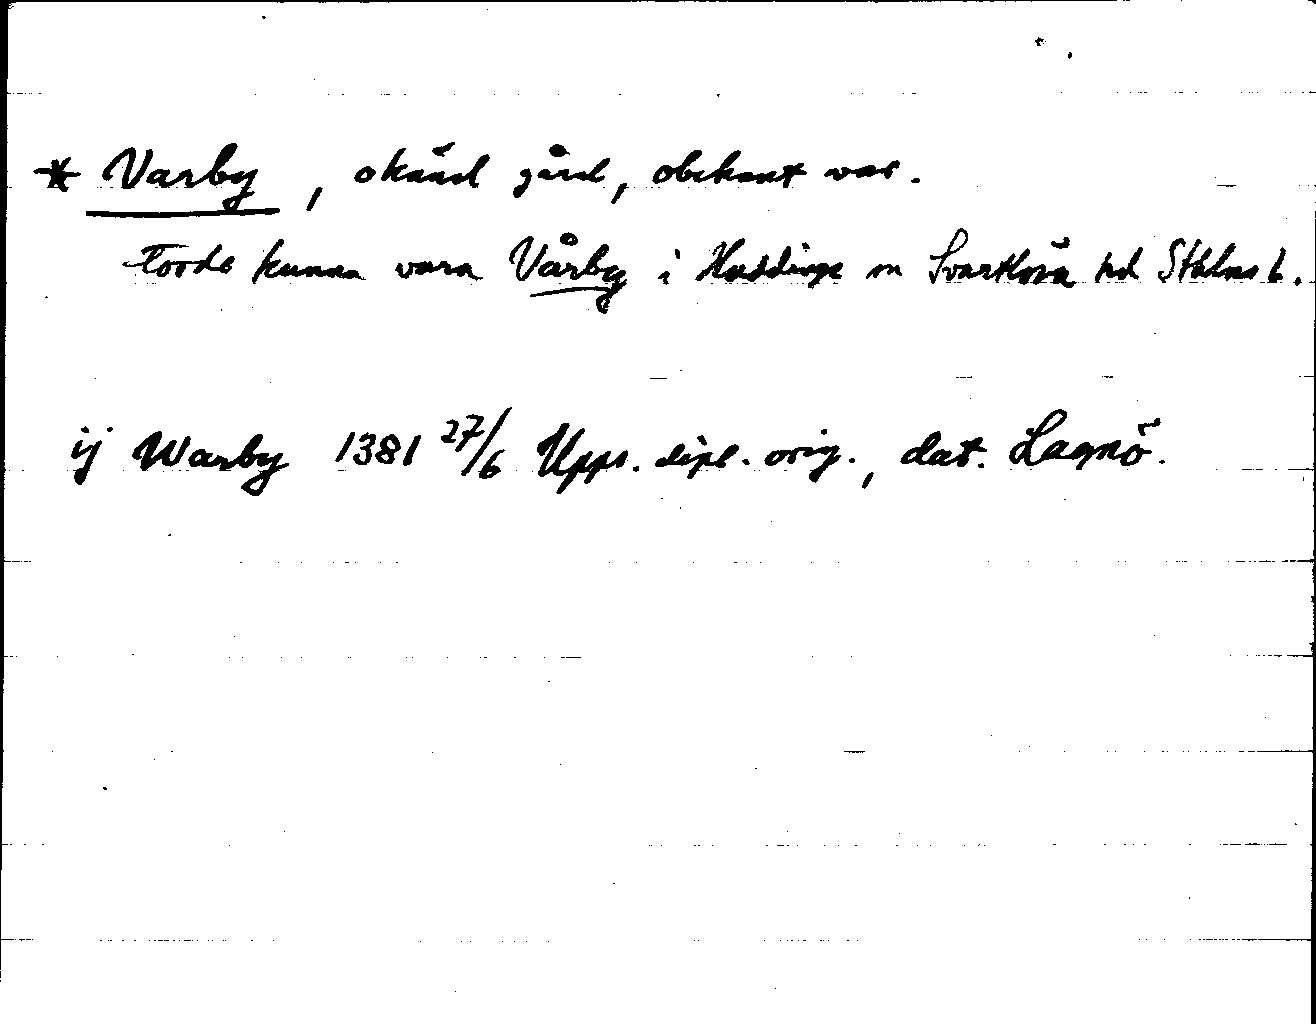 * Varby, okänd gård, obekant var.
Torde kunna vara Vårby i Huddinge sn Svartlösa hd Sthlms l.
ij Warby 1381 27/6 Upps. dipl. orig., dat. Lagnö.